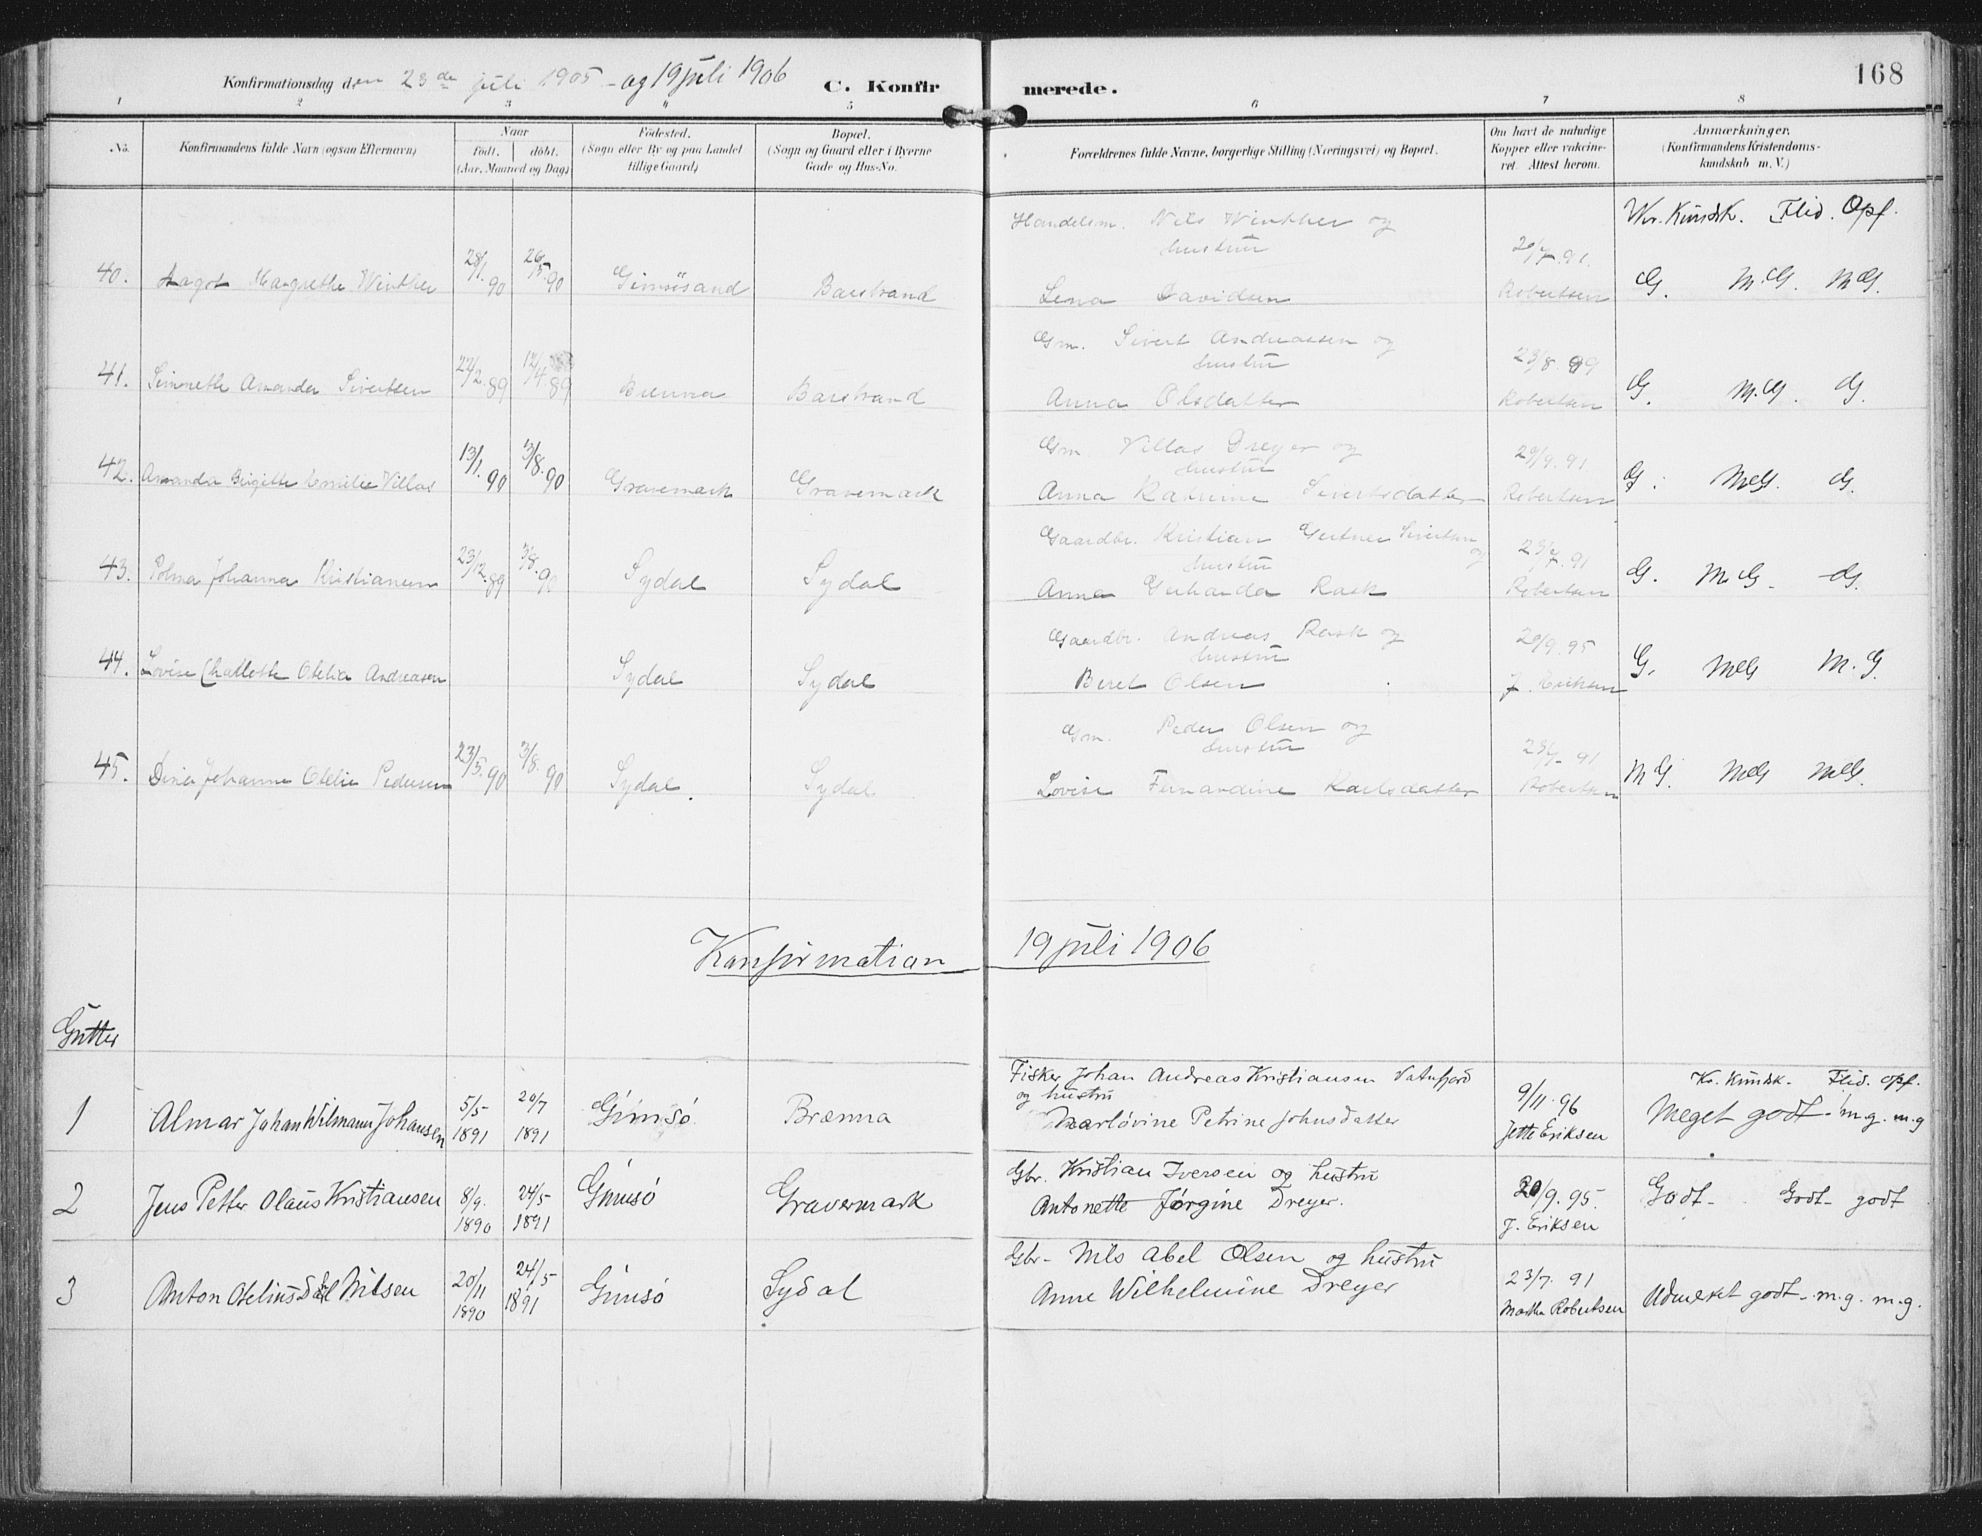 Konfirmationsdag den 23de juli 1905 - og 19 juli 1906 C. Konfirmerede. 168
1 2 3 4 5 6 7 8
No. Konfirmandens fulde Navn (ogsaa Efternavn) Naar født. døbt. (Aar, Maaned og Dag) Fødested. (Sogn eller By og paa Landet tillige Gaard) Bopæl. (Sogn og Gaard eller i Byerne Gade og Hus-No. Forældrenes fulde Navne, borgerlige Stilling (Næringsvei) og Bopæl. Om havt de naturlige Kopper eller vakcineret. Attest herom. Anmærkninger. (Konfirmandens Kristendomskundskab m. V.)
Kr. Kundsk. Flid. Opf.
Handelsm. Nils Winther og
hustru
40. Aagot Margrethe Winther 28/1. 90 26/5. 90 Gimsøsand Barstrand Lena Davidsen 20/7. 91. Robertsen G. M.G. MG.
Gm. Sivert Andreassen og
hustru
41. Amanda Sivertsen 27/2. 89 17/4. 89 Brenna Barstrand Anna Olsdatter 23/8. 89 Robertsen G. M.G. G.
Gm. Villas Dreyer og
hustru
42. Amanda Birgitte Emilie Villas 13/1. 90 3/8. 90 Gravermark Gravermark Anna Katrine Sivertsdatter 20/9. 91. Robertsen G. MG. G.
Gaardbr. Kristian Gertner Sivertsen og
hustru
43. Johanna Kristiansen 23/12. 89 3/8. 90 Sydal Sydal Anna Gerharda Rask 23/7. 91 Robertsen G. M.G. G.
Gaardbr. Andreas Rask og
hustru
44. Lovise Charlotte Otelia Andreasen Sydal Sydal Beret Olsen 20/9. 95 J. Eriksen G. MG M.G
Gm. Peder Olsen og
hustru
45. Dina Johanne Otelie Pedersen 23/5. 90 3/8. 90 Sydal. Sydal Lovise Fernandine Karlsdatter 23/7. 91 Robertsen MG. MG MG.
Konfirmation 19 juli 1906
Gutter
Fisker Johan Andreas Kristiansen Vatnfjord Kr. Kundsk. Flid. Opf.
og hustru
1 Almar Johan Wilmann Johansen 5/5 1891 20/7 1891 Gimsø Brænna Marløvine Petrine Johnsdatter 9/11. 96 Jette Eriksen Meget godt - m.g. m.g
Gbr. Kristian Iversen og hustru
2 Jens Petter Olaus Kristiansen 8/9. 1890 24/5 1891 Gimsø Gravermark Antonette Jørgine Dreyer. 20/9. 95. J. Eriksen Godt - Godt - godt
Gbr - Nils Abel Olsen og hustru
3 Anton Otelius Dal Nilsen 20/11 1890 24/5 1891 Gimsø Sydal Anne Wilhelmine Dreyer 23/7. 91 Martha Robertsen Udmerket godt - m.g. m.g.